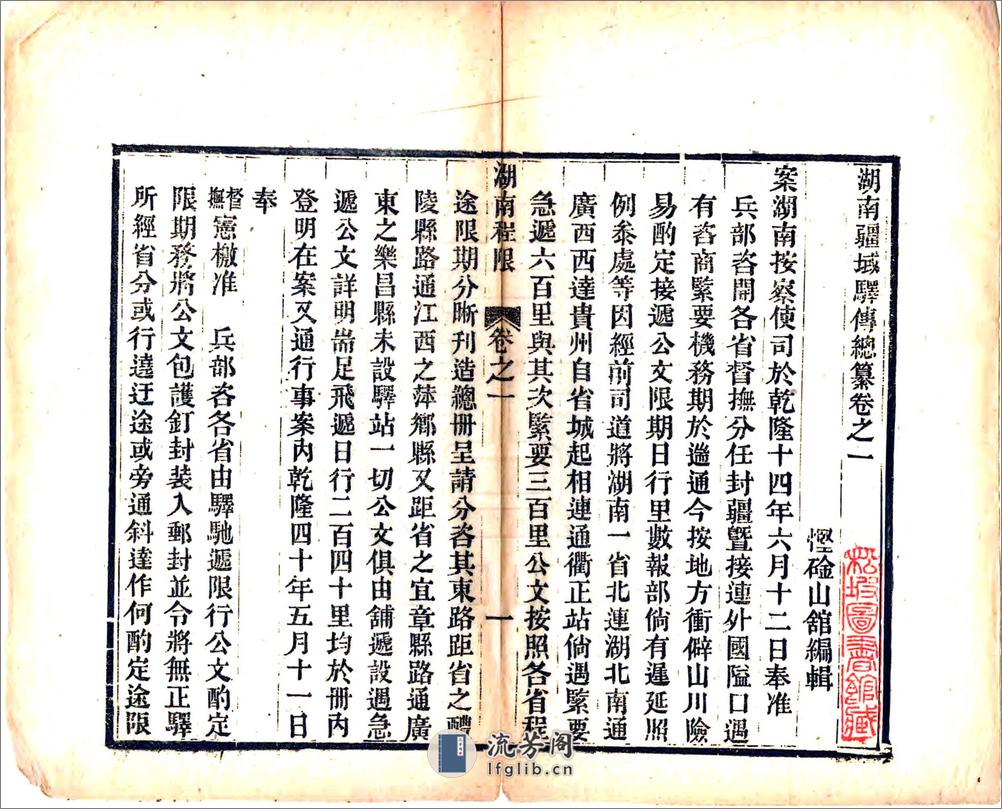 湖南疆域驛傳總纂卷之一
慳硷山舘編輯
案湖南按察使司於乾隆十四年六月十二日奉准
兵部咨開各省督撫分任封疆曁接連外國隘口遇
有咨商緊要機務期於遄通今按地方衝僻山川險
易酌定接遞公文限期日行里數報部倘有遲延照
例叅處等因經前司道將湖南一省北連湖北南通
廣西西達貴州自省城起相連通衢正站倘遇緊要
急遞六百里與其次緊要三百里公文按照各省程
湖南程限 卷之一 一
途限期分晰刊造總册呈請分咨其東路距省之醴
陵縣路通江西之萍鄉縣又距省之宜章縣路通廣
東之樂昌縣未設驛站一切公文俱由舖遞設遇急
遞公文詳明耑足飛遞日行二百四十里均於册內
登明在案又通行事案內乾隆四十年五月十一日
奉
督撫憲檄准 兵部咨各省由驛馳遞限行公文酌定
限期務將公文包護釘封裝入郵封並令將無正驛
所經省分或行達迂途或旁通斜達作何酌定途限
松坡圖書館藏
流芳阁
lfglib.cn